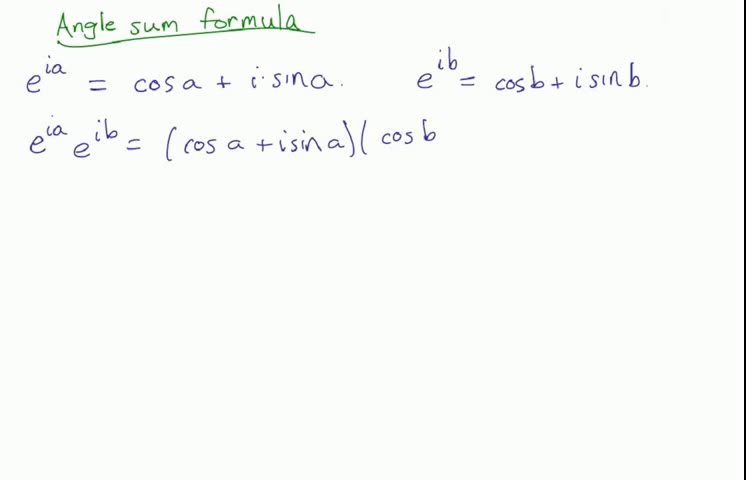 Angle sum formula
e^{ia} = cos a + i·sin a. e^{ib} = cos b + i sin b.
e^{ia} e^{ib} = (cos a + i sin a)(cos b